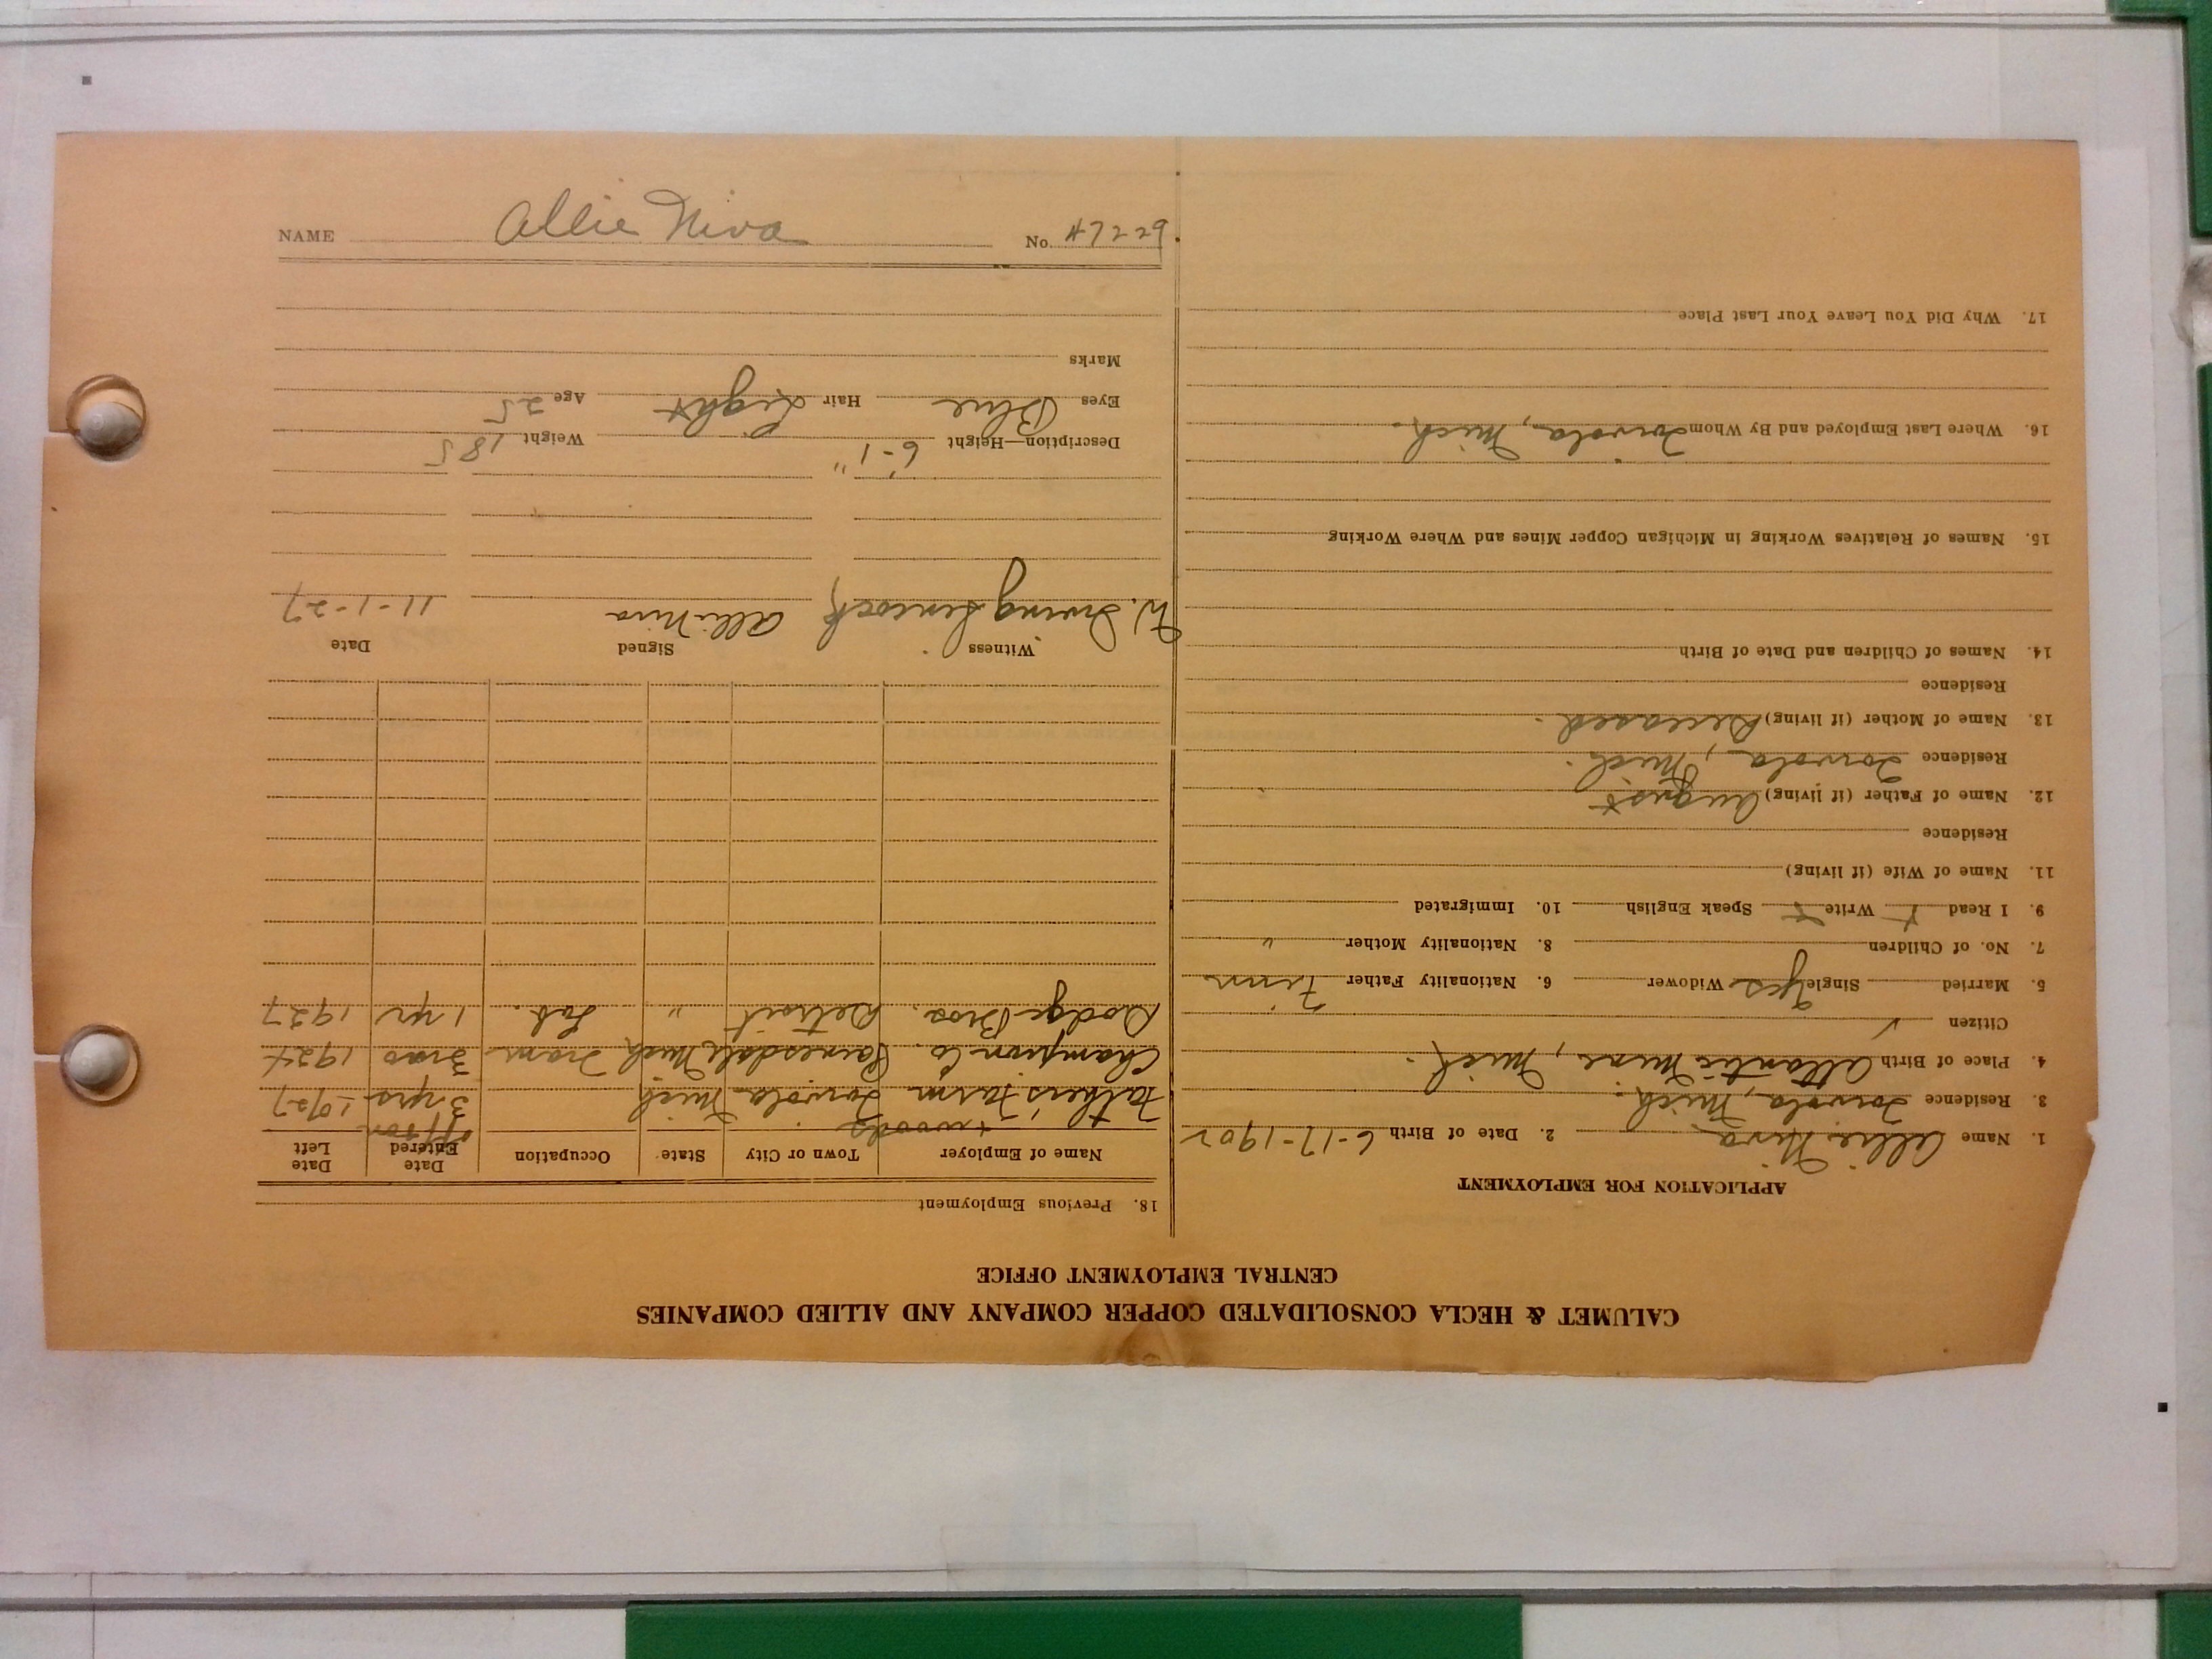 CALUMET & HECLA CONSOLIDATED COPPER COMPANY AND ALLIED COMPANIES
CENTRAL EMPLOYMENT OFFICE
APPLICATION FOR EMPLOYMENT
1. Name Allie Niva 2. Date of Birth 6-17-1902
3. Residence Toivola, Mich.
4. Place of Birth Atlantic Mine, Mich.
Citizen ✓
5. Married Single yes Widower 6. Nationality Father Finn
7. No. of Children 8. Nationality Mother "
9. I Read x Write x Speak English 10. Immigrated
11. Name of Wife (if living)
Residence
12. Name of Father (if living) August
Residence Toivola, Mich.
13. Name of Mother (if living) Deceased.
Residence
14. Names of Children and Date of Birth
15. Names of Relatives Working in Michigan Copper Mines and Where Working
16. Where Last Employed and By Whom Toivola, Mich.
17. Why Did You Leave Your Last Place
18. Previous Employment
Name of Employer Town or City State Occupation Date Entered Date Left
Father's Farm + woods Toivola Mich off+on 3 yrs 10/27
Champion Co. Painesdale Mich Tram 3 mo 1924
Dodge Bros. Detroit " Lab. 1 yr 1927
Witness Signed Date
W. Irving Allie Niva 11-1-27
Description—Height 6-1" Weight 185
Eyes Blue Hair Light Age 25
Marks
NAME Allie Niva No. 47229